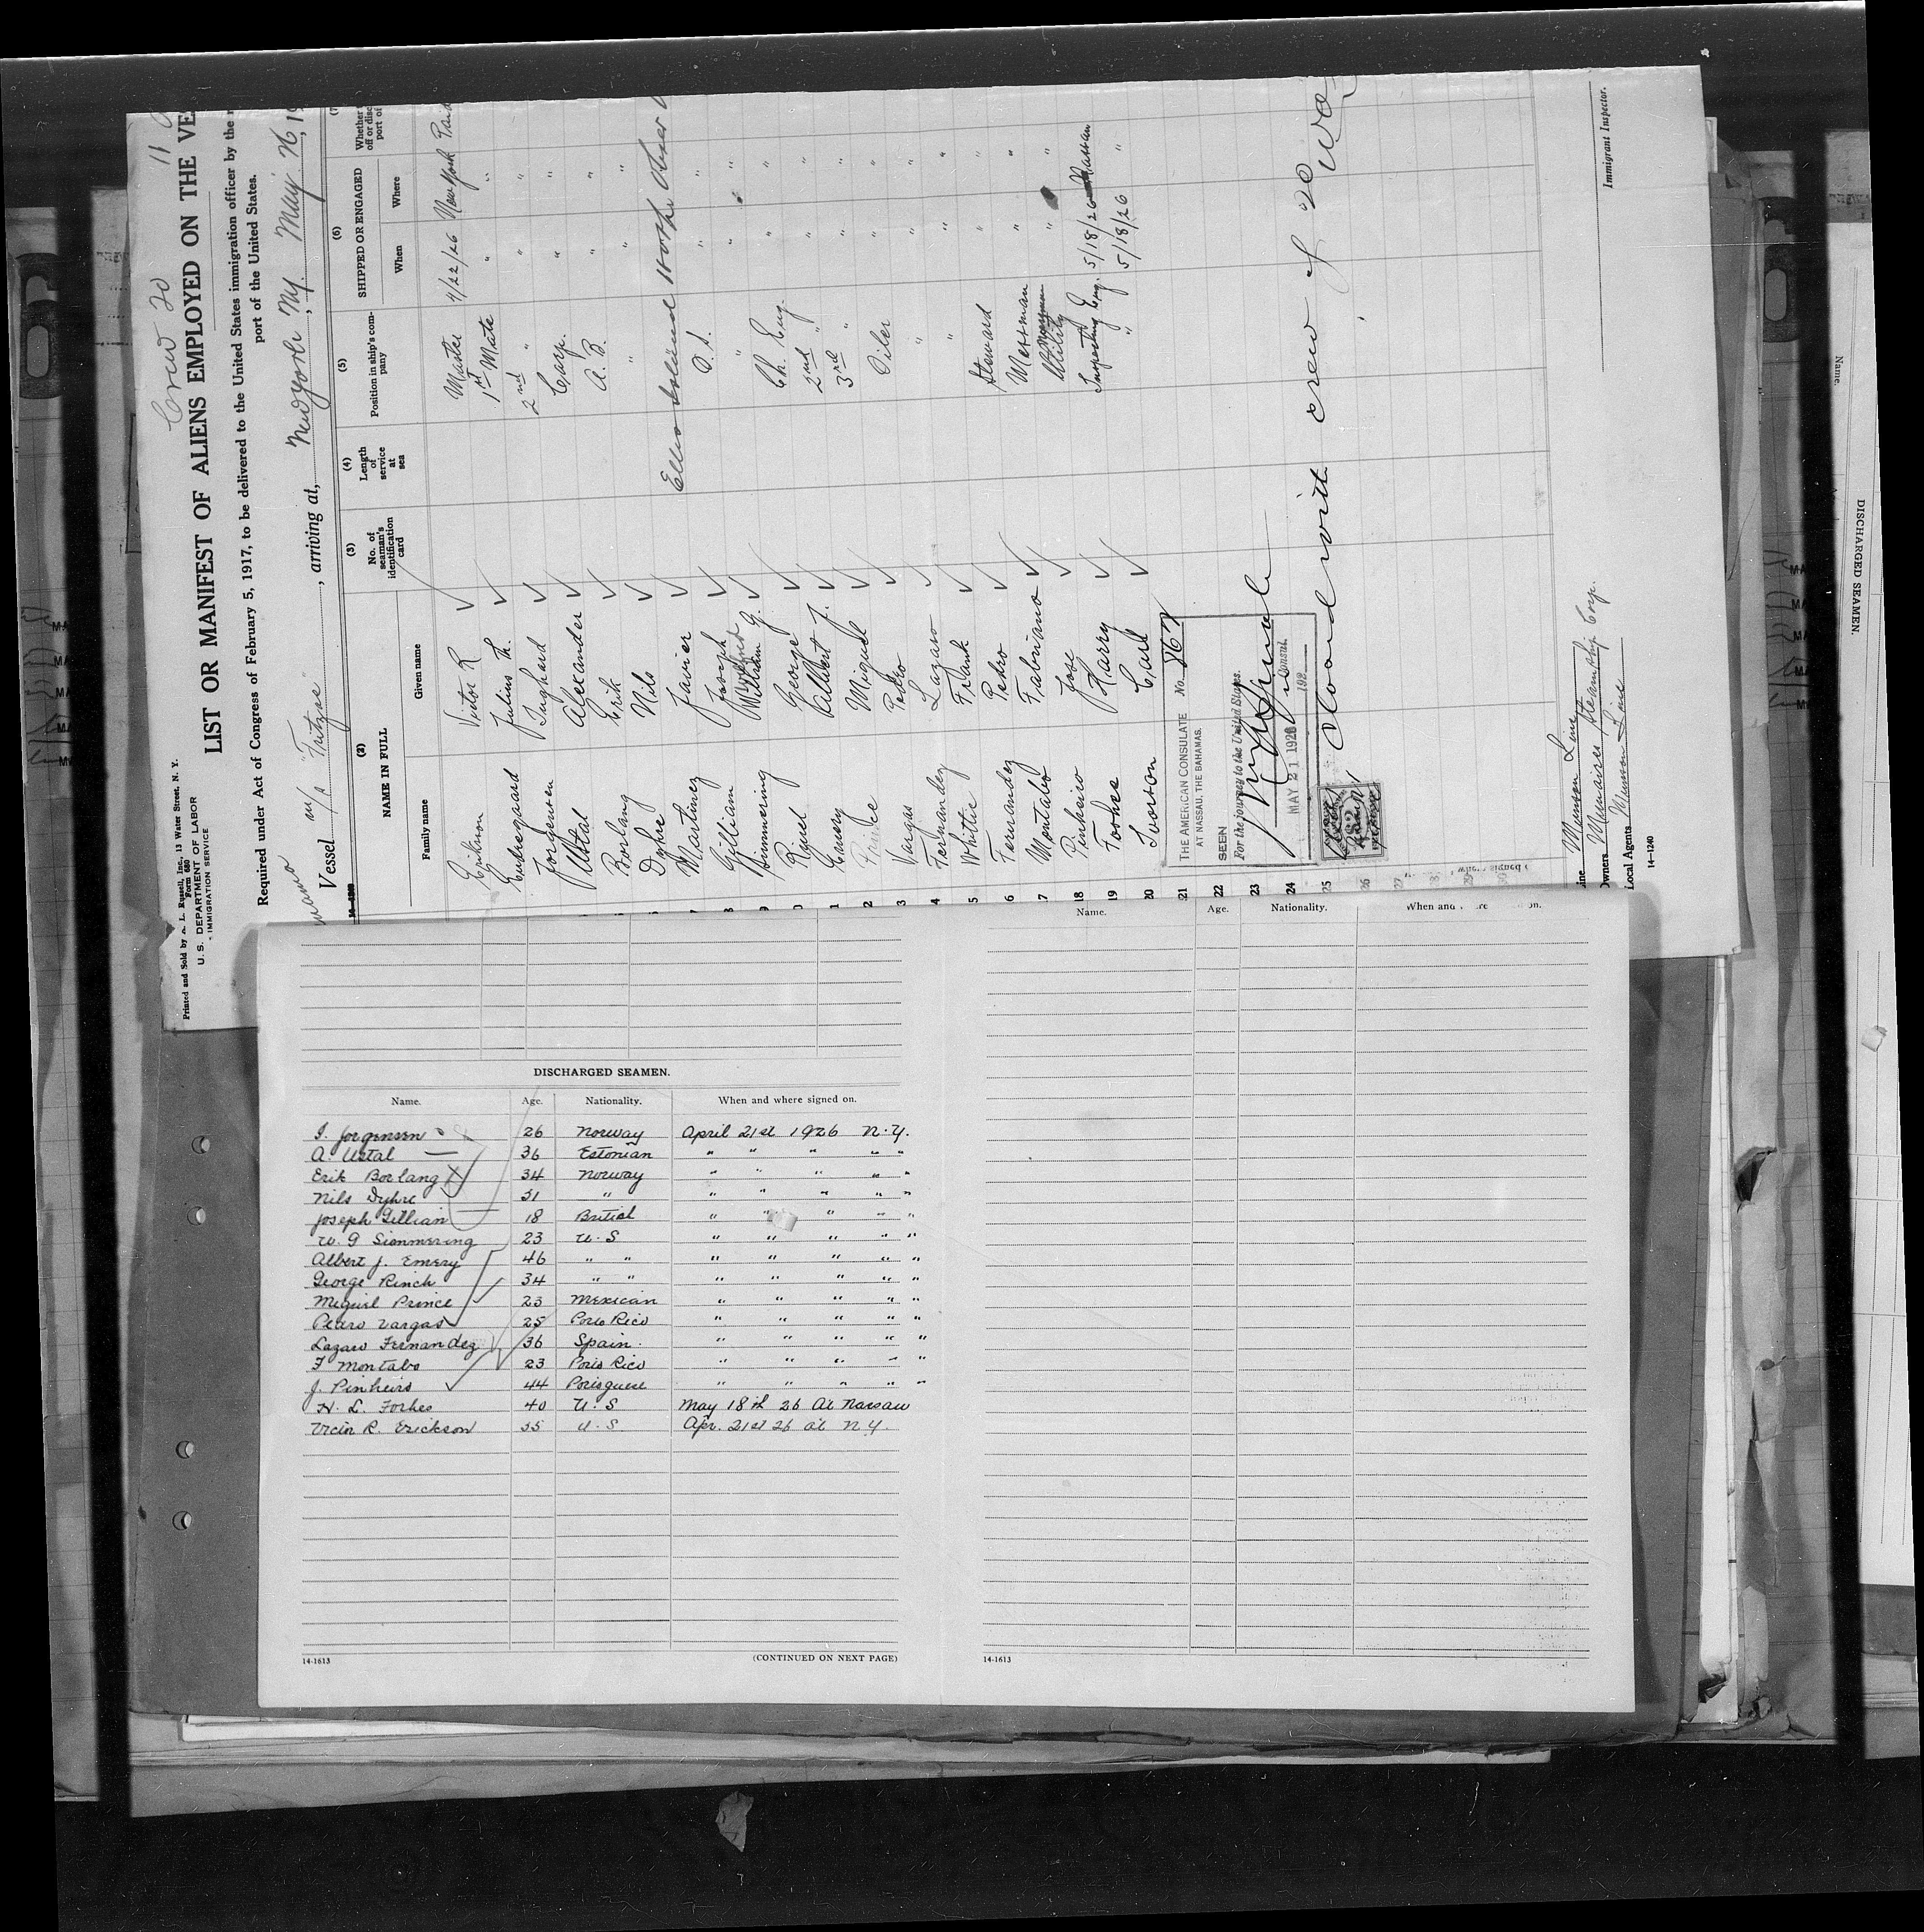 Crew 20 11
LIST OR MANIFEST OF ALIENS EMPLOYED ON THE VE
Required under Act of Congress of February 5, 1917, to be delivered to the United States immigration officer by the
port of the United States.
Printed and Sold by L. Russell, Inc., 13 Water Street, N. Y.
Form 680
U. S. DEPARTMENT OF LABOR
IMMIGRATION SERVICE
Vessel "Tritza", arriving at, New York Ny. May 26, 19
(2) (3) (4) (5) (6) (7)
NAME IN FULL
Family name Given name
No. of seaman's identification card
Length of service at sea
Position in ship's company
SHIPPED OR ENGAGED
When Where
Erikson Victor R Master 4/22/26 New York
Julius Th. 1st Mate " "
Jorgensen Inghard 2nd " " "
Ustal Alexander Carp. " "
Borlang Erik A.B. " "
Dyhre Nils " " "
7 Martinez Javier
8 Gilliam Joseph O.S. " "
9 Simmering William G. " " "
George Ch. Eng. " "
1 Emery Albert J. 2nd " " "
2 Prince Miguel 3rd " " "
3 Vargas Pedro Oiler " "
4 Fernandez Lazaro " " "
5 White Frank " " "
6 Fernandez Pedro Steward " "
7 Montabo Fabriano Messman " "
18 Pinheiro Jose Utility " "
19 Forbes Harry Inspecting Eng. 5/18/26 Nassau
20 Ivorson Carl " 5/18/26 "
21
22
23
24
25
THE AMERICAN CONSULATE No. 867
AT NASSAU, THE BAHAMAS.
SEEN
For the journey to the United States.
Consul.
MAY 21 1926
192
Closed with crew of 20
Line Munson Line
Owners Munaires Steamship Corp.
Local Agents Munson Line
14-1240
Immigrant Inspector.
Name. Age. Nationality. When and
DISCHARGED SEAMEN.
Name. Age. Nationality. When and where signed on.
I. Jorgensen 26 Norway April 21st 1926 N.Y.
A. Ustal 36 Estonian " " " " "
Erik Borlang 34 Norway " " " " "
Nils Dyhre 31 " " " " " "
Joseph Gillian 18 British " " " " "
W. G Simmering 23 U.S " " " " "
Albert J. Emery 46 " " " " " " "
George Rinch 34 " " " " " " "
Miguel Prince 23 Mexican " " " " "
Pedro Vargas 25 Porto Rico " " " " "
Lazaro Fernandez 36 Spain. " " " " "
F Montabo 23 Porto Rico " " " " "
J. Pinheiro 44 Portuguese " " " " "
H. L. Forbes 40 U.S May 18th 26 At Nassau
Victor R. Erickson 55 U.S Apr. 21st 26 at N.Y.
14-1613 (CONTINUED ON NEXT PAGE) 14-1613
Name.
DISCHARGED SEAMEN.